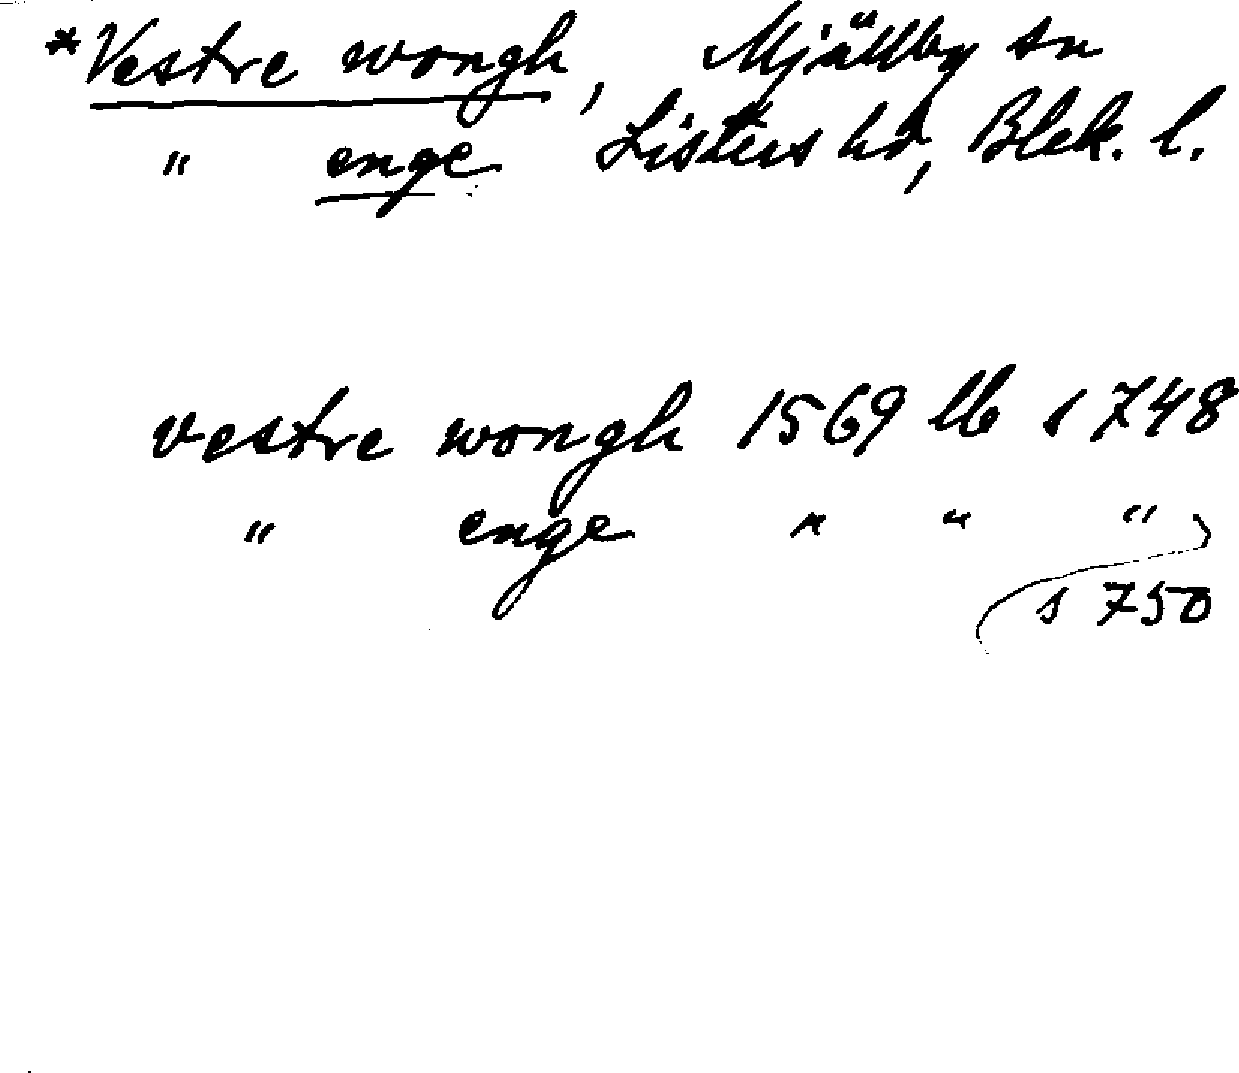 *Vestre wongh, Mjällby sn
" enge Listers hd, Blek. l.
vestre wongh 1569 lb s 748
" enge " " "
s 750